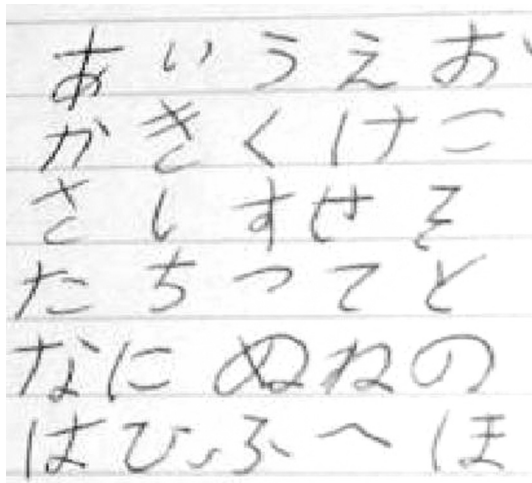 あいうえお
かきくけこ
さしすせそ
たちつてと
なにぬねの
はひふへほ